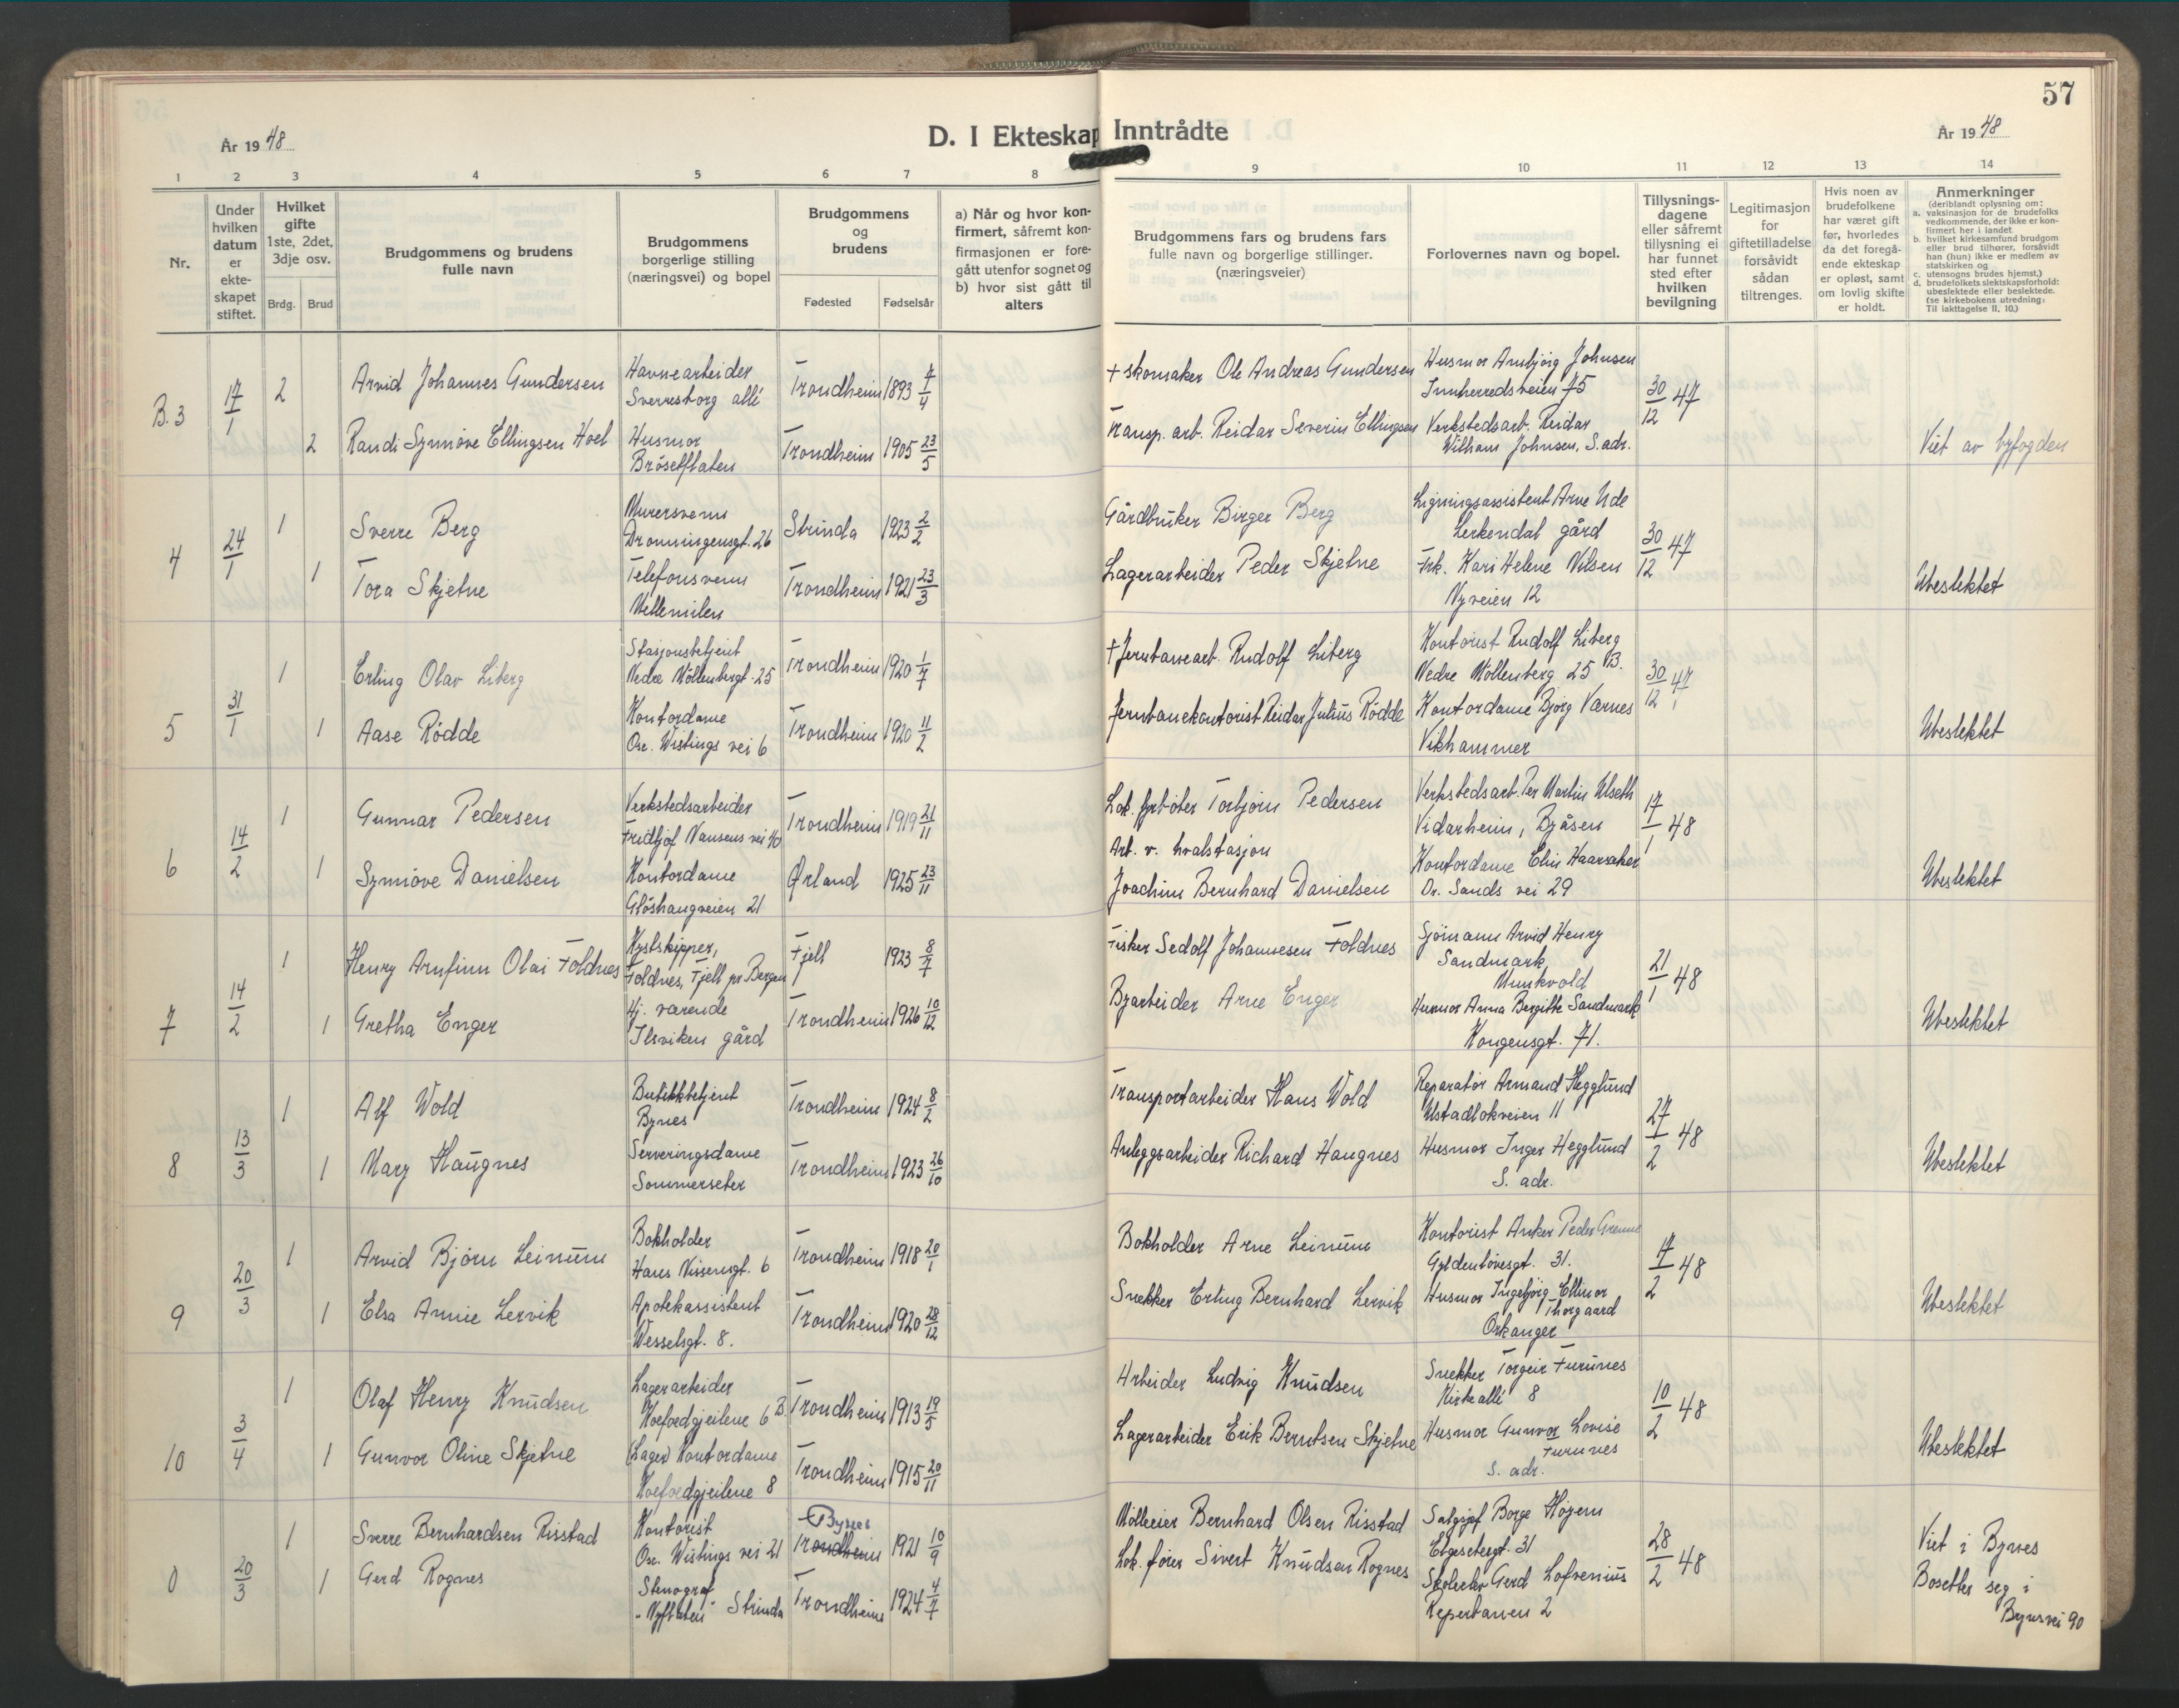 57
År 1948
D. I Ekteskap Inntrådte
År 1948
1 2 3 4 5 6 7 8 9 10 11 12 13 14
Nr.
Under hvilken datum er ekte-skapet stiftet.
Hvilket gifte 1ste, 2det, 3dje osv.
Brdg. Brud
Brudgommens og brudens fulle navn
Brudgommens borgerlige stilling (næringsvei) og bopel
Brudgommens og brudens
Fødested Fødselsår
a) Når og hvor kon-firmert, såfremt kon-firmasjonen er fore-gått utenfor sognet og b) hvor sist gått til alters
Brudgommens fars og brudens fars fulle navn og borgerlige stillinger. (næringsveier)
Forlovernes navn og bopel.
Tillysnings-dagene eller såfremt tillysning ei har funnet sted efter hvilken bevilgning
Legitimasjon for giftetilladelse forsåvidt sådan tiltrenges.
Hvis noen av brudefolkene har været gift før, hvorledes da det foregå-ende ekteskap er opløst, samt om lovlig skifte er holdt.
Anmerkninger
(deriblandt oplysning om:
a. vaksinasjon for de brudefolks vedkommende, der ikke er kon-firmert her i landet
b. hvilket kirkesamfund brudgom eller brud tilhører, forsåvidt han (hun) ikke er medlem av statskirken og
c. utensogns brudes hjemst.)
d. brudefolkets slektskapsforhold: ubeslektede eller beslektede. (se kirkebokens utredning: Til iakttagelse II. 10.)
B.3 17/1 2 Arvid Johannes Gundersen Havnearbeider Sverresborg allé Trondheim 1893 7/4 + skomaker Ole Andreas Gundersen Husmor Ansbjørg Johnsen Innherredsveien 75 30/12 47
2 Randi Synnøve Ellingsen Hoel Husmor Brøsetflaten Trondheim 1905 23/5 Transp. arb. Reidar Severin Ellingsen Verkstedsarb. Reidar Wilham Johnsen, S. adr. Viet av byfogden
4 24/1 1 Sverre Berg Murersvenn Dronningensgt. 26 Strinda 1923 2/2 Gårdbruker Birger Berg Ligningsassistent Arne Ude Lerkendal gård 30/12 47
1 Tora Skjetne Telefonsvenn Mellemilen Trondheim 1921 23/3 Lagerarbeider Peder Skjetne Frk. Kari Helene Nilsen Nyveien 12 Ubeslektet
5 31/1 1 Erling Olav Liberg Stasjonsbetjent Nedre Möllenbergt. 25 Trondheim 1920 1/7 + Jernbanearb. Rudolf Liberg Kontorist Rudolf Liberg Nedre Möllenberg 25 B. 30/12 47
1 Aase Rödde Kontordame Osc. Wistings vei 6 Trondheim 1920 11/2 Jernbanekontorist Reidar Julius Rödde Kontordame Bjørg Værnes Vikhammer Ubeslektet
6 14/2 1 Gunnar Pedersen Verkstedsarbeider Fridtjof Nansens vei 40 Trondheim 1919 21/11 Lok. fyrbøter Torbjørn Pedersen Verkstedsarb. Per Martin Ulseth Vidarheim, Byåsen 17/1 48
1 Synnøve Danielsen Kontordame Gløshaugveien 21 Ørland 1925 23/11 Arb. v. hvalstasjon Joachim Bernhard Danielsen Kontordame Elin Haarsaker Or. Sands vei 29 Ubeslektet
7 14/2 1 Henry Arnfinn Olai Foldnes Kystskipper, Foldnes, Fjell pr Bergen Fjell 1923 8/7 Fisker Sedolf Johannesen Foldnes Sjømann Arvid Henry Sandmark Munkvold 21/1 48
1 Gretha Enger Hj. værende Ilsviken gård Trondheim 1926 10/12 Byarbeider Arne Enger Husmor Anna Bergitte Sandmark Kongensgt. 71. Ubeslektet
8 13/3 1 Alf Wold Butikkbetjent Bynes Trondheim 1924 8/2 Transportarbeider Hans Wold Reparatør Armand Hegglund Ustadlokveien 11 27/2 48
1 Mary Haugnes Serveringsdame Sommerseter Trondheim 1923 26/10 Anleggsarbeider Richard Haugnes Husmor Inger Hegglund S. adr. Ubeslektet
9 20/3 1 Arvid Bjørn Leinum Bokholder Hans Nissensgt. 6 Trondheim 1918 20/1 Bokholder Arne Leinum Kontorist Anker Peder Grenne Gyldenløvesgt. 31. 17/2 48
1 Elsa Annie Lervik Apotekassistent Wesselsgt. 8. Trondheim 1920 28/12 Snekker Erling Bernhard Lervik Husmor Ingebjørg Ellinor Thorgaard Orkanger Ubeslektet
10 3/4 1 Olaf Henry Knudsen Lagerarbeider Hoefoedgjeilene 6 B. Trondheim 1913 19/5 Arbeider Ludvig Knudsen Snekker Torgeir Furunes Kirkeallé 8 10/2 48
1 Gunvor Oline Skjetne (Lager) Kontordame Hoefoedgjeilene 8 Trondheim 1915 20/11 Lagerarbeider Erik Berntsen Skjetne Husmor Gunvor Lovise Furunes S. adr. Ubeslektet
0 20/3 1 Sverre Bernhardsen Risstad Kontorist Osc. Wistings vei 21 Bynes Trondheim 1921 10/9 Mølleeier Bernhard Olsen Risstad Salgsjef Borge Højem Elgesetergt. 31 28/2 48 Viet i Bynes
1 Gerd Rognes Stenograf "Nyflaten" Strinda Trondheim 1924 4/7 Lok. fører Sivert Knudsen Rognes Skoleelev Gerd Lofvenius Reperbanen 2 Bosetter seg i Bynesvei 90